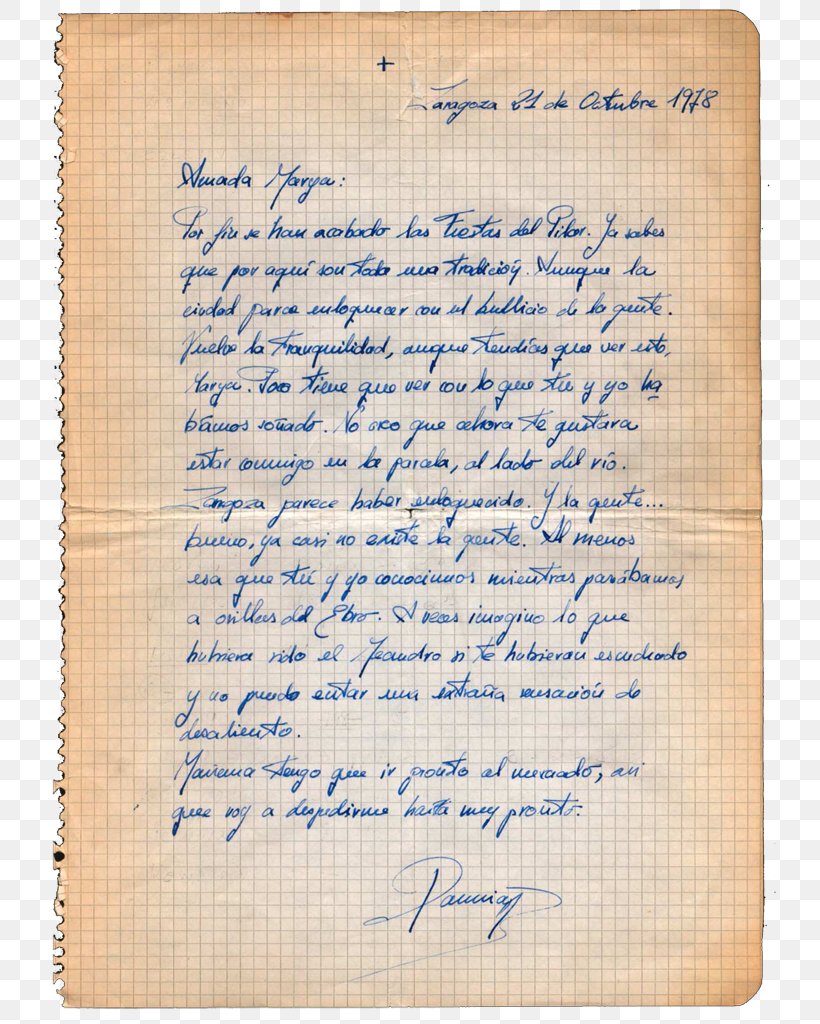 +
Zaragoza 21 de Octubre 1978
Amada Marga:
Por fin se han acabado las Fiestas del Pilar. Ya sabes
que por aquí son toda una tradición. Aunque la
ciudad parece enloquecer con el bullicio de la gente.
Vuelve la tranquilidad, aunque tendrías que ver esto,
Marga. Poco tiene que ver con lo que tú y yo ha
bíamos soñado. No creo que ahora te gustara
estar conmigo en la parcela, al lado del río.
Zaragoza parece haber enloquecido. Y la gente...
bueno, ya casi no existe la gente. Al menos
esa que tú y yo conocimos mientras paseábamos
a orillas del Ebro. A veces imagino lo que
hubiera sido el Meandro si te hubieran escuchado
y no puedo evitar una extraña sensación de
desaliento.
Mañana tengo que ir pronto al mercado, así
que voy a despedirme hasta muy pronto.